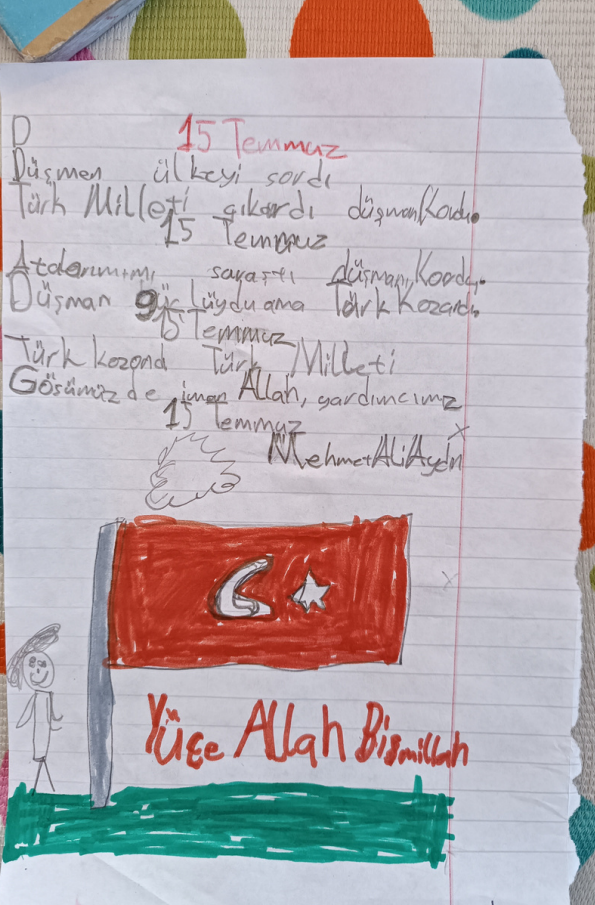 D
15 Temmuz
Düşmen ülkeyi sordı
Türk Milleti çıkardı düşman Kovdu.
15 Temmuz
savaştı düşmanı, Kovdu.
Düşman güçlüydu ama Türk Kazardı.
15 Temmuz
Türk kazond Türk Milleti
Gösümüzde iman Allah, yardımcımız
15 Temmuz
Mehmet Ali Aydın
Yüce Allah Bismillah